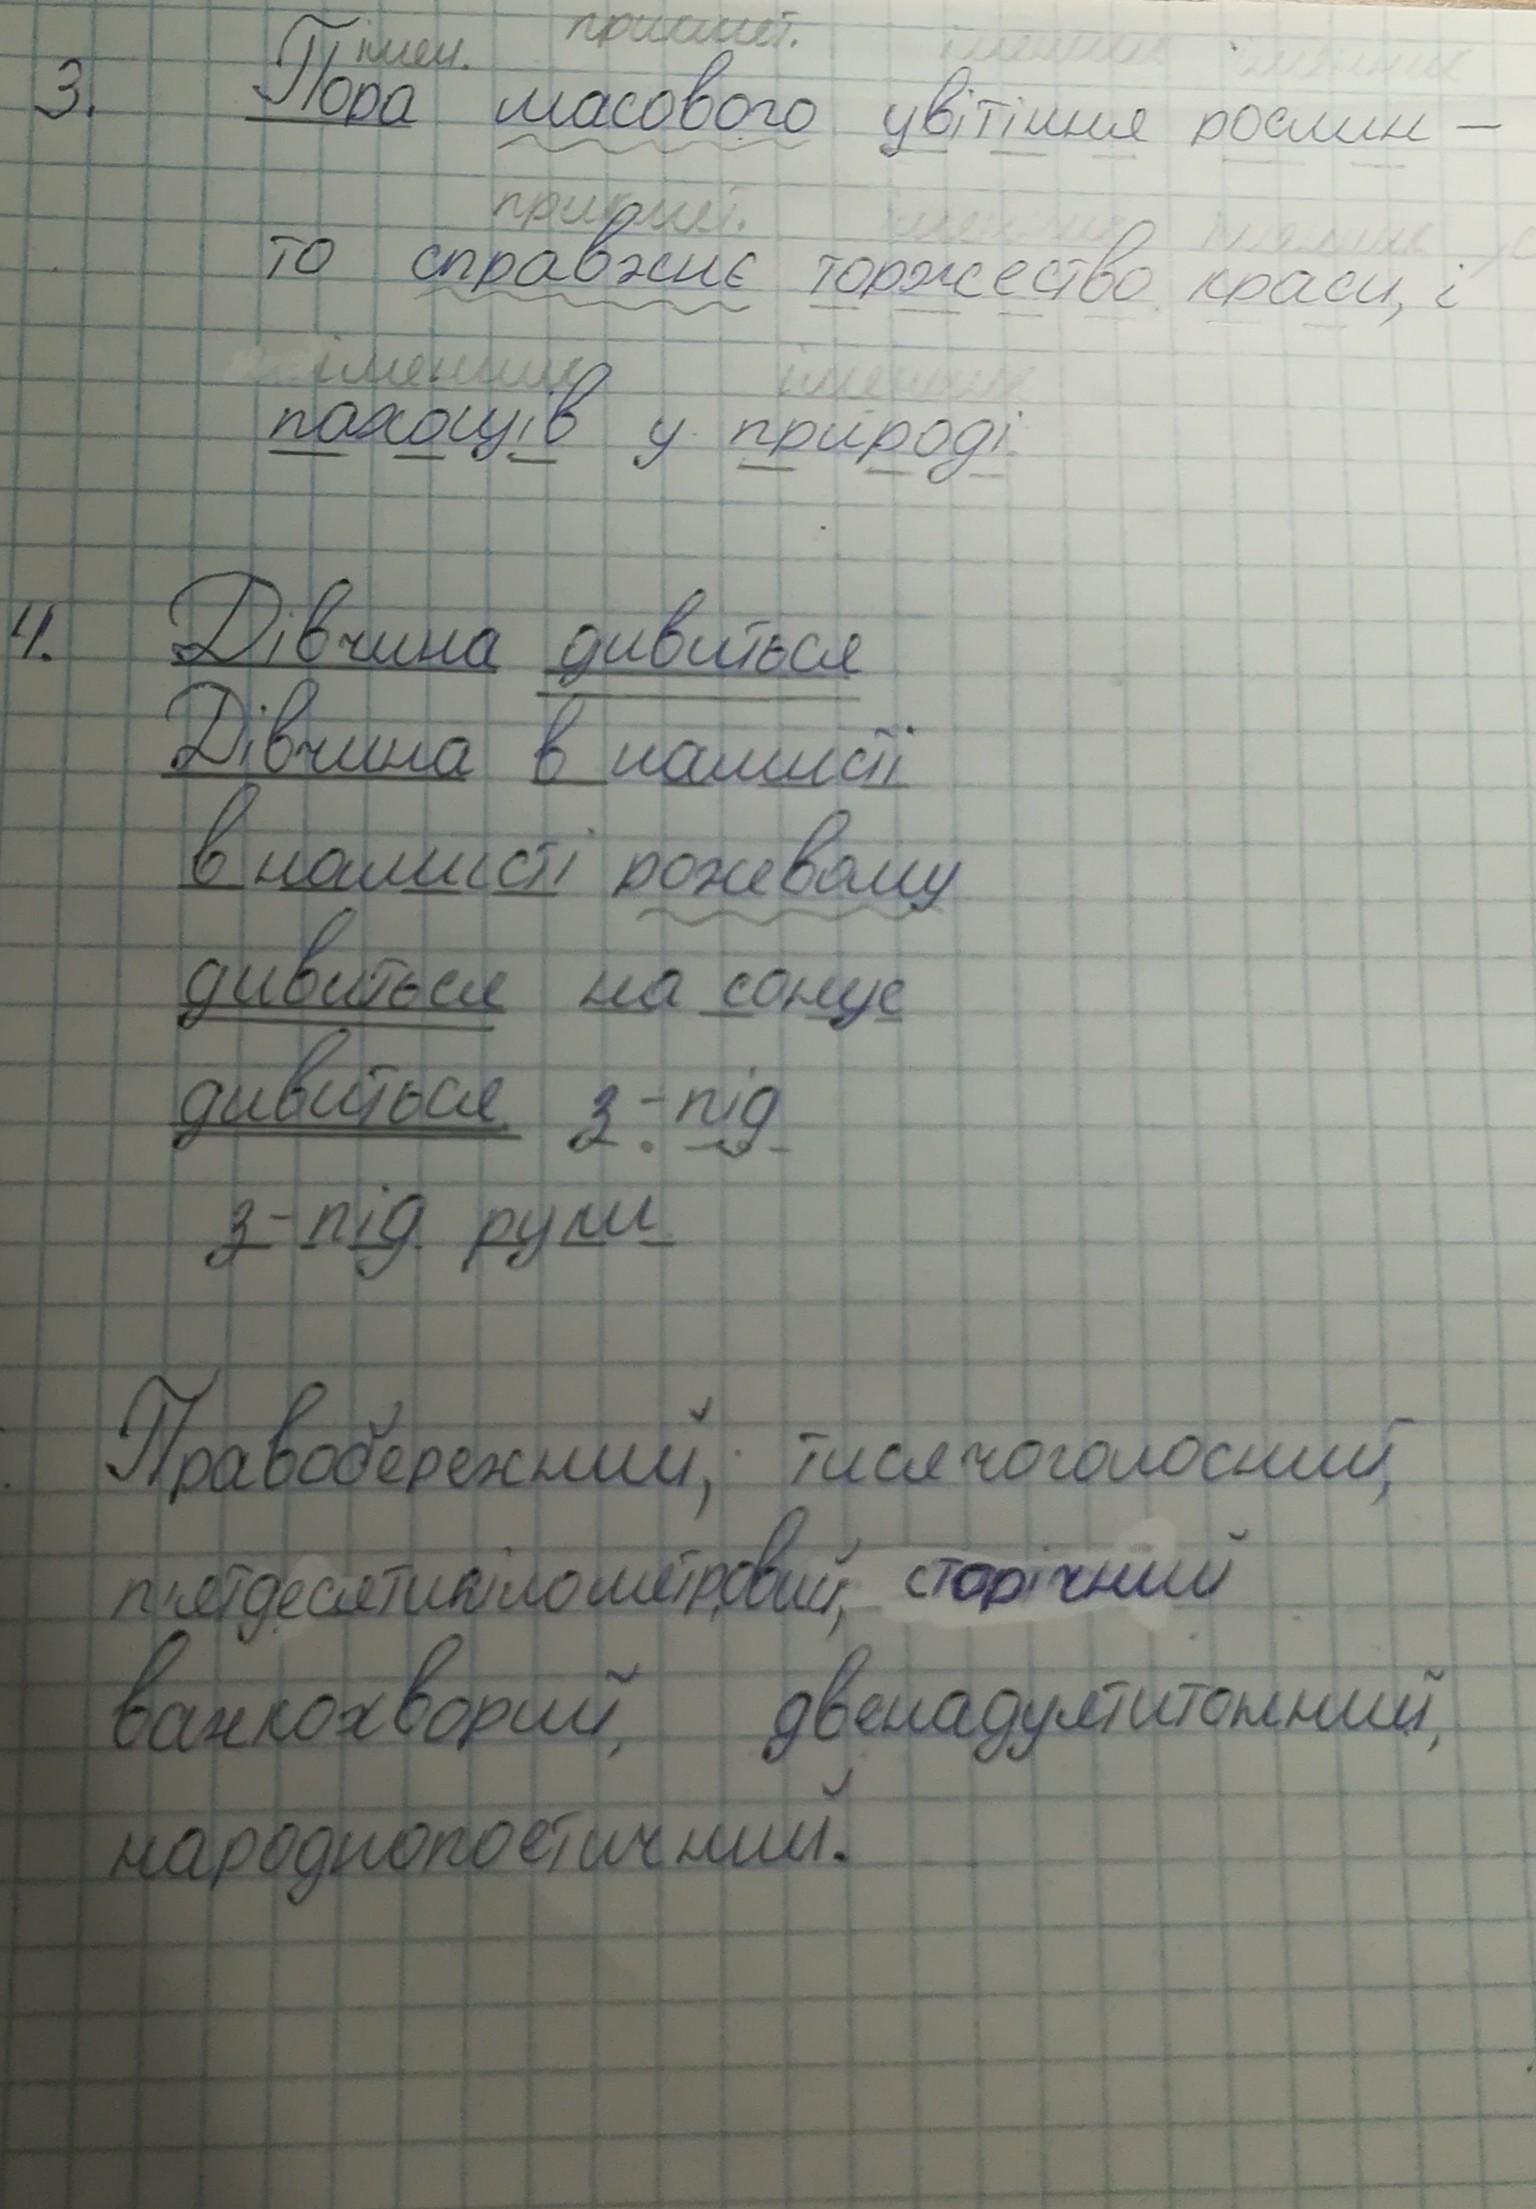 імен. прикмет. іменник іменник
3. Пора масового цвітіння рослин –
прикмет. іменник іменник
то справжнє торжество краси, і
іменник іменник
пахощів у природі.
4. Дівчина дивиться
Дівчина в намисті
в намисті рожевому
дивиться на сонце
дивиться з-під
з-під руки
Правобережний, тисячоголосний,
п'ятдесятикілометровий, сторічний
важкохворий, двенадцятитонний,
народнопоетичний.